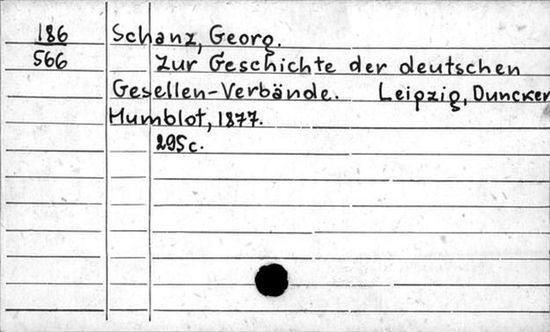 186 Schanz, Georg.
566 Zur Geschichte der deutschen
Gesellen-Verbände. Leipzig, Duncker
Humblot, 1877.
295c.